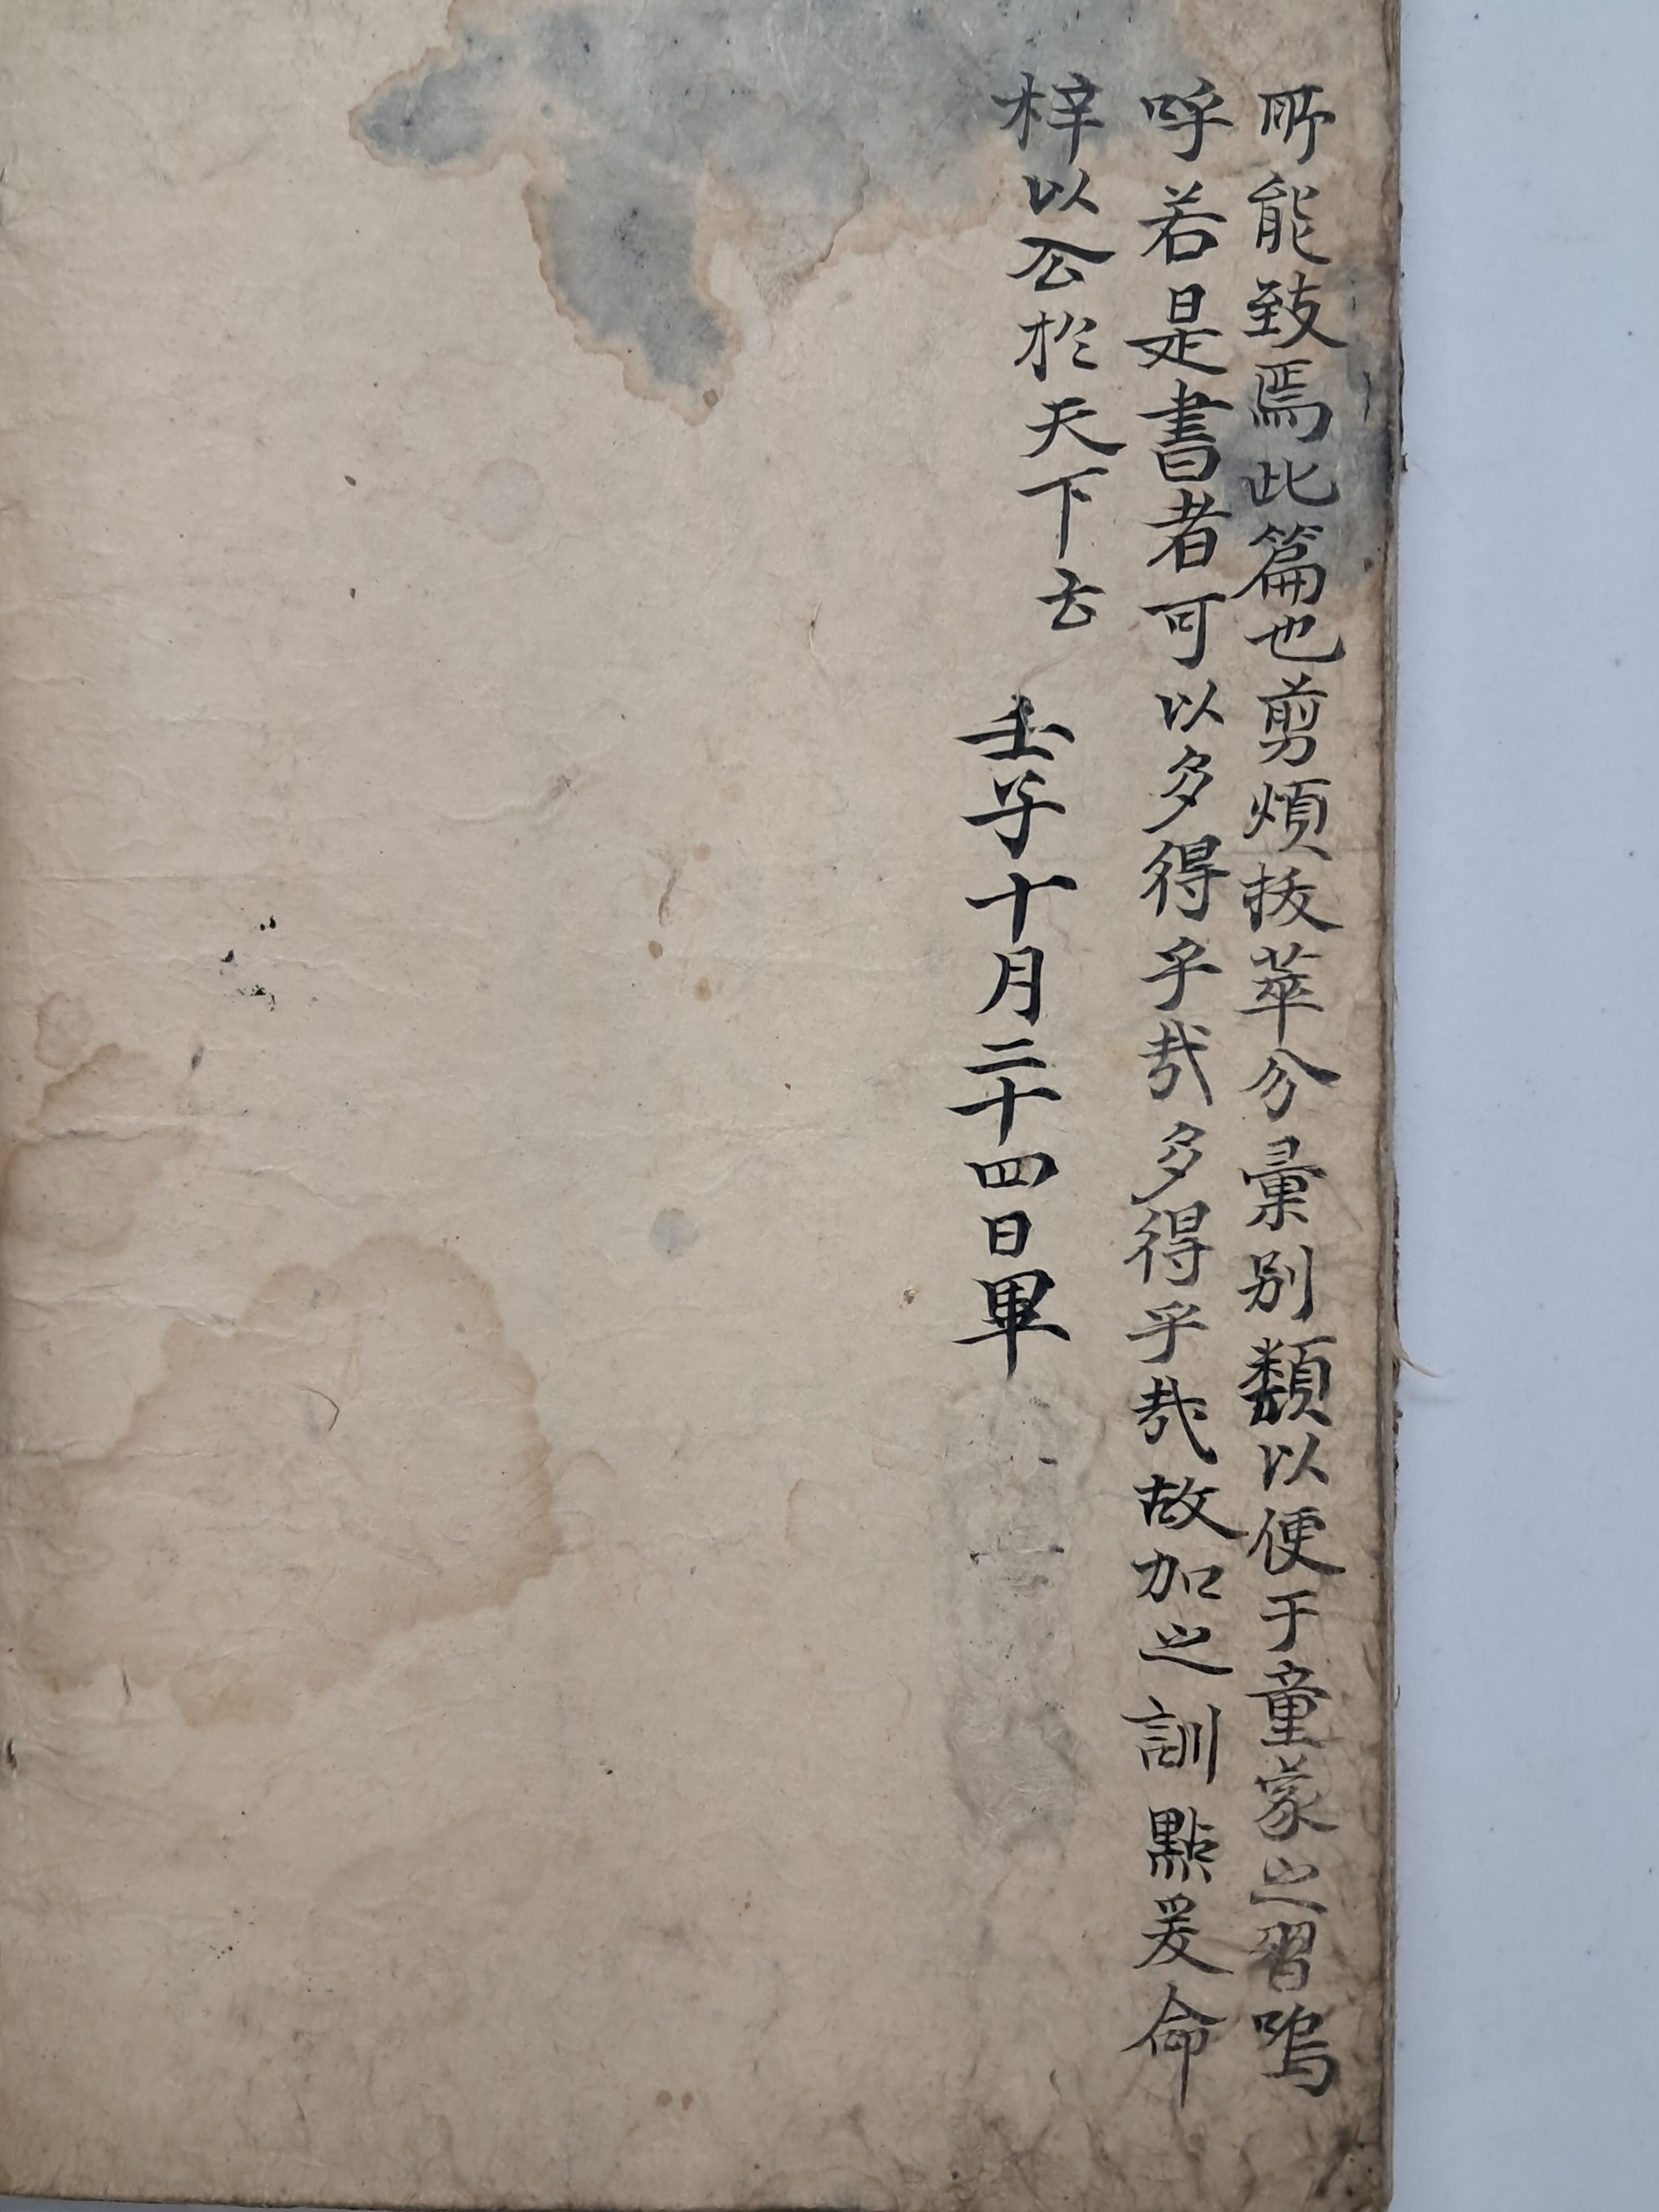 所能致焉此篇也剪煩拔萃分彙别類以便于童蒙之習嗚
呼若是書者可以多得乎哉多得乎哉故加之訓點爰命
梓以公於天下云
壬子十月二十四日畢